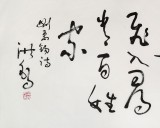 飛入尋
常百姓
家
劉禹錫詩